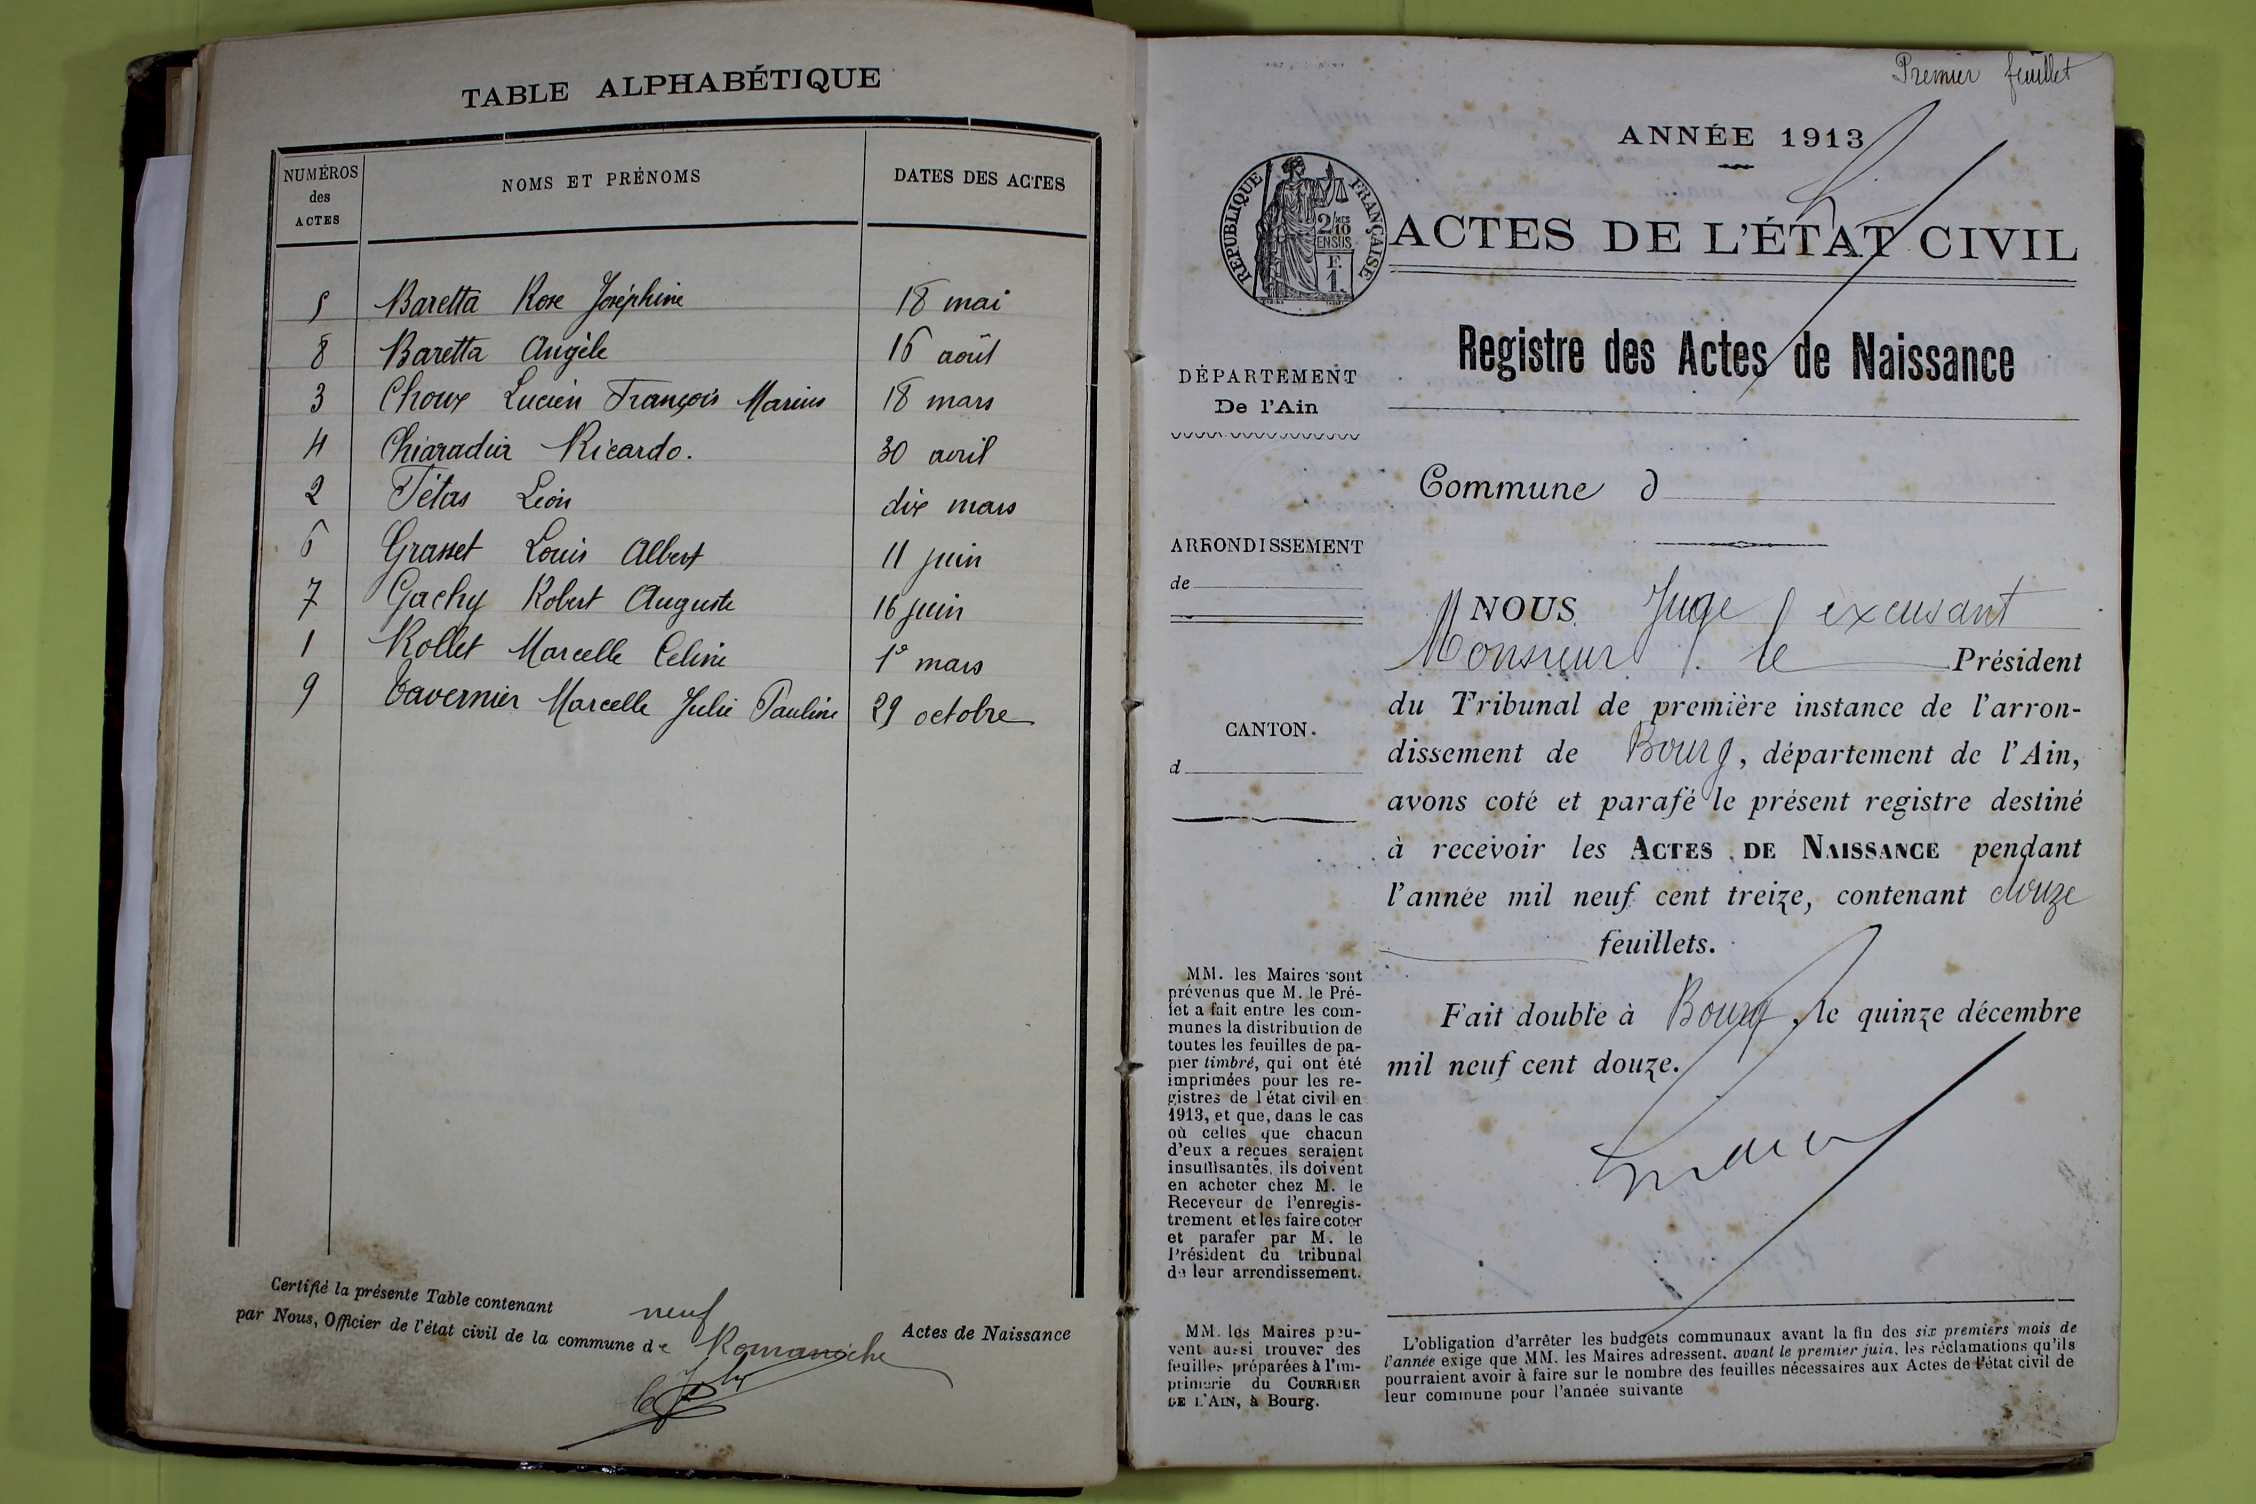 TABLE ALPHABÉTIQUE
NUMÉROS des ACTES
NOMS ET PRÉNOMS
DATES DES ACTES
5 Baretta Rose Joséphine 18 mai
8 Baretta Angèle 16 août
3 Choux Lucien François Marius 18 mars
4 Chiaradia Ricardo. 30 avril
2 Fétas Léon dix mars
6 Grasset Louis Albert 11 juin
7 Gachy Robert Auguste 16 juin
1 Rollet Marcelle Celine 1er mars
9 Tavernier Marcelle Julie Pauline 29 octobre
Certifié la présente Table contenant neuf Actes de Naissance
par Nous, Officier de l'état civil de la commune de Romanèche
Premier feuillet
ANNÉE 1913
RÉPUBLIQUE FRANÇAISE
2/10 MES
EN SUS
F.
1.
ACTES DE L'ÉTAT CIVIL
Registre des Actes de Naissance
DÉPARTEMENT
De l'Ain
Commune d
ARRONDISSEMENT
de
CANTON.
d
NOUS Juge excusant
Monsieur le Président
du Tribunal de première instance de l'arron-
dissement de Bourg, département de l'Ain,
avons coté et parafé le présent registre destiné
à recevoir les ACTES DE NAISSANCE pendant
l'année mil neuf cent treize, contenant douze
feuillets.
Fait double à Bourg, le quinze décembre
mil neuf cent douze.
MM. les Maires sont
prévenus que M. le Pré-
fet a fait entre les com-
munes la distribution de
toutes les feuilles de pa-
pier timbré, qui ont été
imprimées pour les re-
gistres de l'état civil en
1913, et que, dans le cas
où celles que chacun
d'eux a reçues seraient
insuffisantes, ils doivent
en acheter chez M. le
Receveur de l'enregis-
trement et les faire coter
et parafer par M. le
Président du tribunal
de leur arrondissement.
MM. les Maires peu-
vent aussi trouver des
feuilles préparées à l'im-
primerie du COURRIER
DE L'AIN, à Bourg.
L'obligation d'arrêter les budgets communaux avant la fin des six premiers mois de
l'année exige que MM. les Maires adressent, avant le premier juin, les réclamations qu'ils
pourraient avoir à faire sur le nombre des feuilles nécessaires aux Actes de l'état civil de
leur commune pour l'année suivante